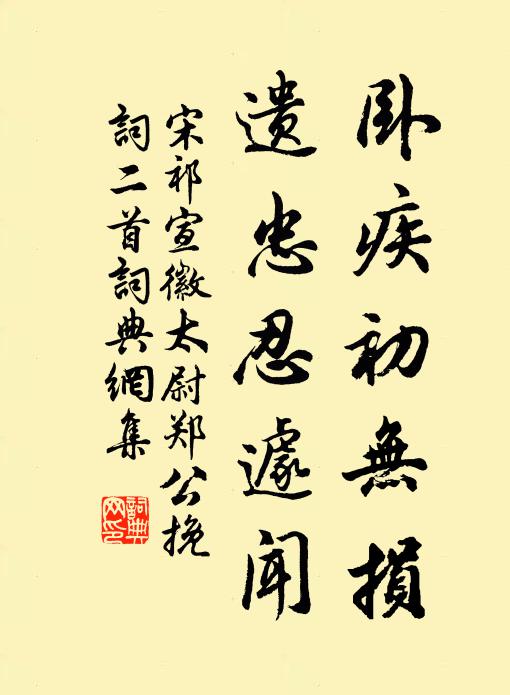 卧疾初無損
遺忠忍遽聞
宋祁宣徽太尉郑公挽
詞二首詞典網集
詞典網印